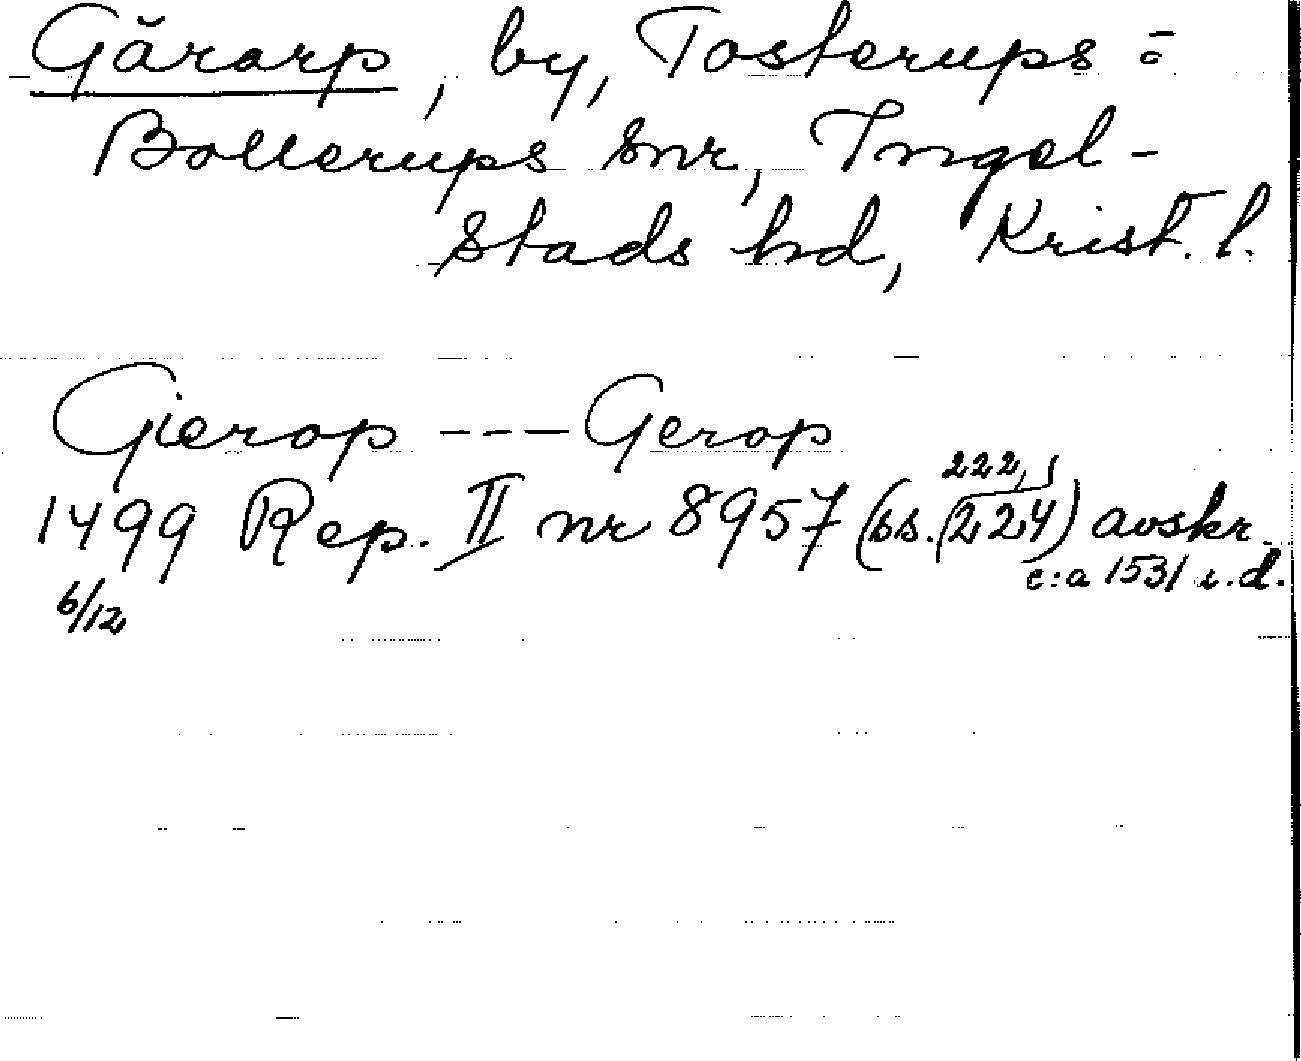 Gärarp, by, Tosterups =
Bollerups snr, Ingel-
stads hd, Krist. l.
Gierop --- Gerop
222,
1499 Rep. II nr 8957 (bs. (224) avskr.
c:a 1531 i.d.
6/12